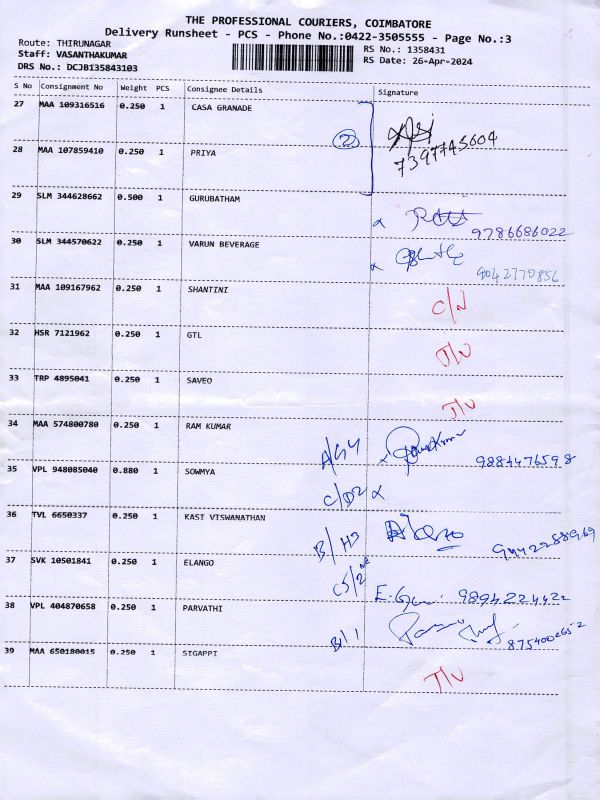 THE PROFESSIONAL COURIERS, COIMBATORE
Delivery Runsheet - PCS - Phone No.:0422-3505555 - Page No.:3
Route: THIRUNAGAR RS No.: 1358431
Staff: VASANTHAKUMAR RS Date: 26-Apr-2024
DRS No.: DCJB135843103
S No Consignment No Weight PCS Consignee Details Signature
27 MAA 109316516 0.250 1 CASA GRANADE
2
28 MAA 107859410 0.250 1 PRIYA 7397745604
29 SLM 344628662 0.500 1 GURUBATHAM
9786686022
30 SLM 344570622 0.250 1 VARUN BEVERAGE
9042770856
31 MAA 109167962 0.250 1 SHANTINI C/N
32 HSR 7121962 0.250 1 GTL J/V
33 TRP 4895041 0.250 1 SAVEO J/V
34 MAA 574800780 0.250 1 RAM KUMAR A/G4
35 VPL 948085040 0.880 1 SOWMYA C/D2
36 TVL 6650337 0.250 1 KASI VISWANATHAN B/H3
37 SVK 10501841 0.250 1 ELANGO 9894224422
38 VPL 404870658 0.250 1 PARVATHI
39 MAA 650180015 0.250 1 SIGAPPI J/V